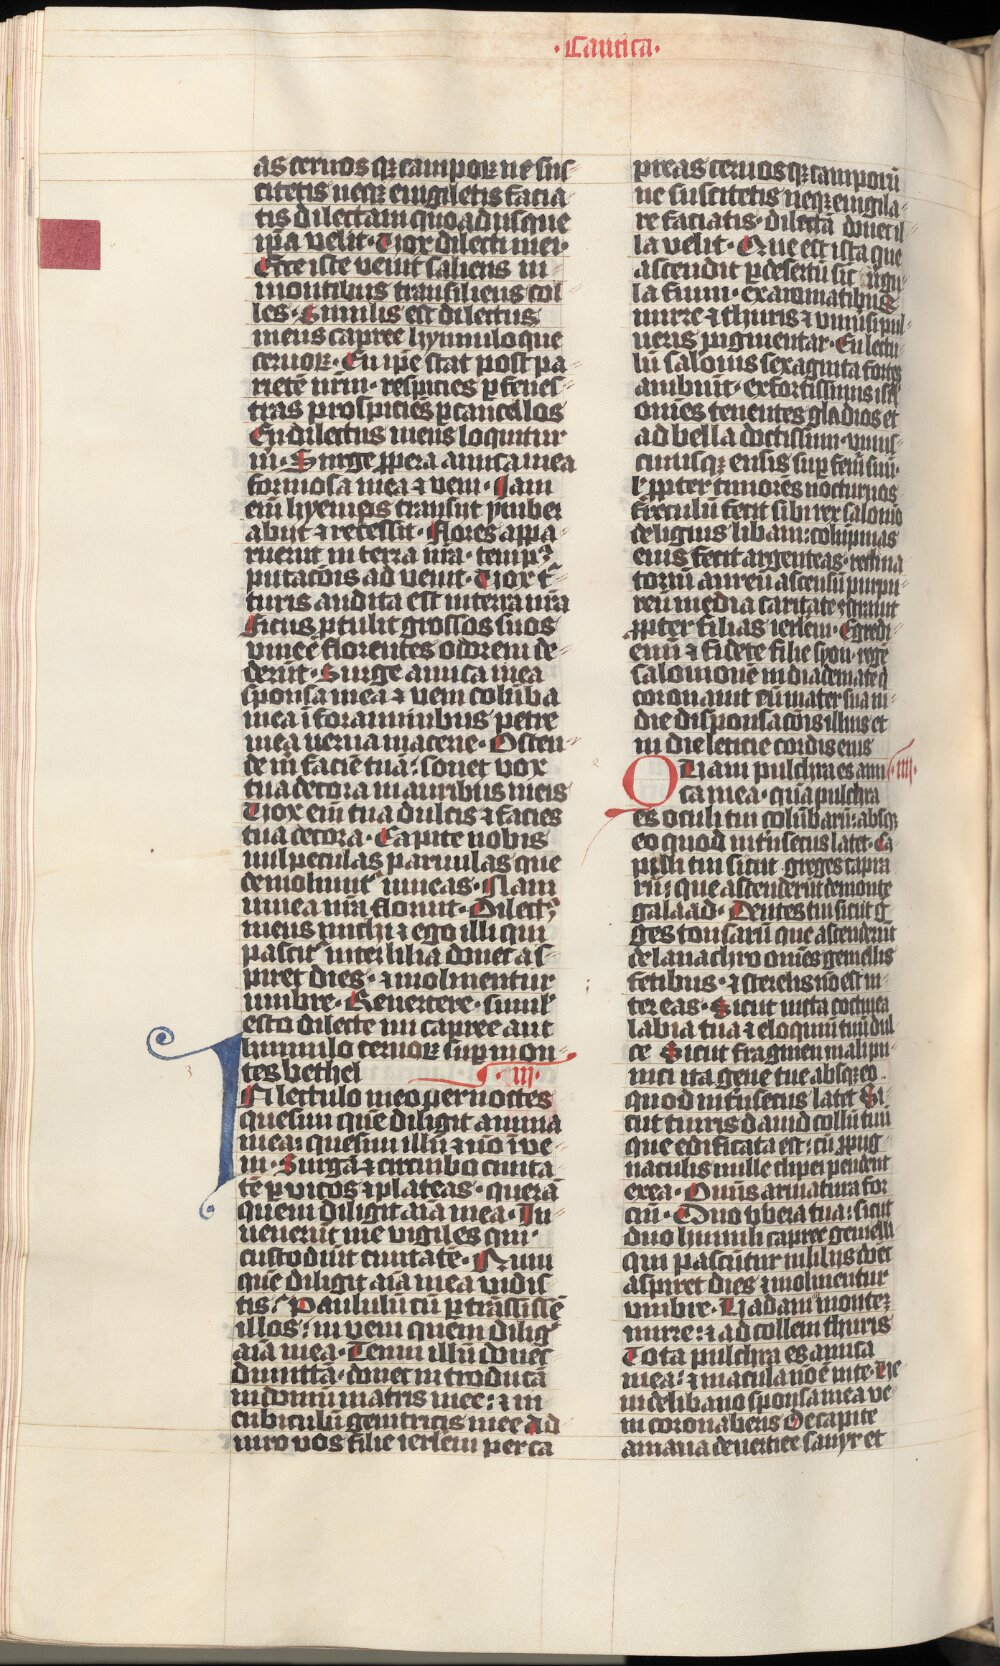 ·Cantica·
as ceruos q̄ campoꝝ ne sus
citetis neqꝫ euigiletis facia
tis dilectam quoadusque
ip̄a velit· Uox dilecti mei·
Ecce iste venit saliens in
montibus transiliens col
les· Similis est dilectus
meus capree hynnuloque
ceruoꝝ· En ip̄e stat post pa
rietē nr̄m· respiciēs ꝑ fenes
tras prospiciēs ꝑ cancellos
En dilectus meus loquitur
m̄· Surge ꝓpera amica mea
formosa mea ⁊ veni· Iam
em̄ hyemps transiit ymber
abiit ⁊ recessit· Flores appa
ruerūt in terra nr̄a· tempꝰ
putac̄ois ad venit· Uox t̄
turis audita est in terra nr̄a
Ficus ꝓtulit grossos suos
vinee florentes odorem de
derūt· Surge amica mea
sponsa mea ⁊ veni colūba
mea ī foraminibus petre
in cauerna macerie· Osten
de m̄ faciē tuā: sonet vox
tua decora in auribus meis
Uox em̄ tua dulcis ⁊ facies
tua decora· Capite nobis
uulpeculas paruulas que
demoliūnt̄ uineas· Nam
uinea nr̄a floruit· Dilectꝰ
meus michi ⁊ ego illi qui
pascit̄ inter lilia donec as
piret dies· ⁊ inclinentur
umbre· Reuertere· simil̄
esto dilecte mi capree aut
hinnulo ceruoꝝ suꝑ mon
tes bethel ·III·
IN lectulo meo per noctes
quesiui quē diligit anima
mea: quesiui illū ⁊ nō īue
ni· Surgā ⁊ circuibo ciuita
tē ꝑ vicos ⁊ plateas· querā
quem diligit aīa mea· In
uenerūt me vigiles qui·
custodiūt ciuitatē· Num
quē diligit aīa mea uidis
tis? Paululū cū ꝑtrāsissē
illos: inveni quem diliḡ
aīa mea· Tenui illū donec
dimittā· donec introducā
in domū matris mee: ⁊ in
cubiculū genitricis mee Ad
iuro vos filie ierl̄em per ca
preas ceruosqꝫ camporū
ne suscitetis neqꝫ euigila
re faciatis· dilectā donec il
la velit· Que est ista que
ascendit ꝑ desertū sic̄ uirgu
la fumi· ex aromatibus
mirre ⁊ thuris ⁊ vniūsi pul
ueris pigmentar̄· En lectu
lū salōnis sexaginta fortes
ambiūt· ex fortissimis isrl̄
omēs tenentes gladios et
ad bella doctissimi· vnius
cuiusqꝫ ensis suꝑ femꝰ suū·
ꝓpter timores nocturnos
Ferculū fecit sibi rex salomō
de lignis libani: colūpnas
eius fecit argenteas· reclina
toriū aureū ascensū purpu
reū media caritate ⁊strauit
ꝓpter filias ierl̄em· Egredi
mini ⁊ fidete filie syon· regē
salomonē in diademate q̄
coronauit eū mater sua in
die disponsac̄ois illius et
in die leticie cordis eius
QUam pulchra es ami ·IIII·
ca mea· quā pulchra
es oculi tui colūbarū: absqꝫ
eo quod intrīsecus latet· Ca
pilli tui sicut greges capra
rū: que ascenderūt de monte
galaad· Dentes tui sicut ḡ
ges tonsarū que ascenderūt
de lauachro omēs gemellis
fetibus· ⁊ sterelis nō est in
ter eas· Sicut uicta coccinea
labia tua ⁊ eloquiū tuū dul
ce Sicut fragmen mali pu
nici ita gene tue absqꝫ eo
quod intrīsecus latet Si
cut turris dauid collū tuū
que edificata est: cū ꝓpug
naculis mille clipei pendent
ex ea· Omīs armatura for
ciū· Duo vbera tua: sicut
duo hinnuli capree gemelli
qui pascūtur in liliis donec
aspiret dies ⁊ inclinentur
vmbre· Uadam ad monteꝫ
mirre: ⁊ ad collem thuris
Tota pulchra es amica
mea: ⁊ macula nō ē in te· Ue
ni de libano sponsa mea ve
ni coronaberis De capite
amana de uertice sanyr et